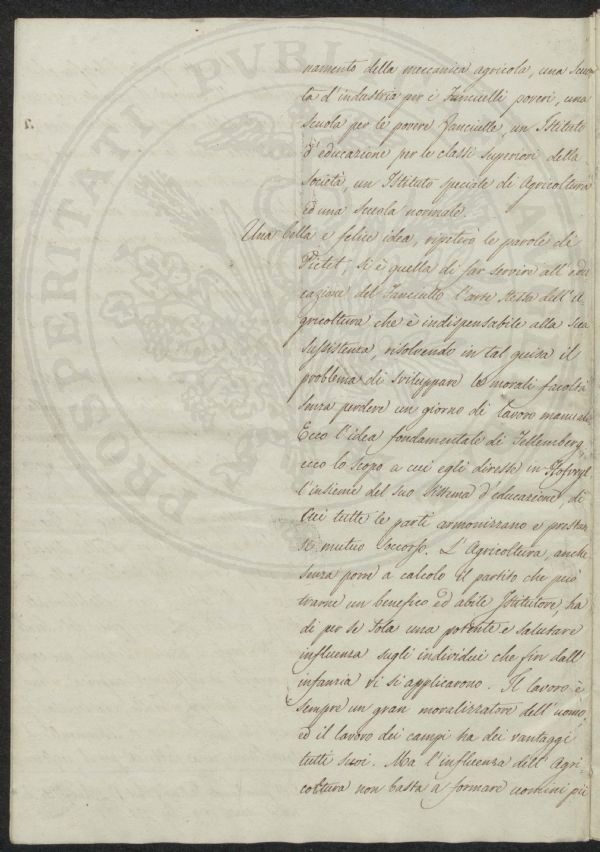 namento della meccanica agricola, una Scuo
la d'industria per i Fanciulli poveri, una
Scuola per le povere Fanciulle, un Istituto
d'educazione per le classi superiori della
Società, un Istituto speciale di Agricoltura
ed una Scuola normale.
Una bella e felice idea, ripeterò le parole di
Pictet, si è quella di far servire all'edu
cazione del Fanciullo l'arte stessa dell'A
gricoltura che è indispensabile alla sua
sussistenza, risolvendo in tal guisa il
problema di sviluppare le morali facoltà
senza perdere un giorno di lavoro manuale.
Ecco l'idea fondamentale di Fellemberg
ecco lo scopo a cui egli diresse in Hofwyl
l'insieme del suo sistema d'educazione, di
cui tutte le parti armonizzano e prestan
si mutuo soccorso. L'Agricoltura, anche
senza porre a calcolo il partito che può
trarne un benefico ed abile Istitutore, ha
di per se sola una potente e salutare
influenza sugli individui che fin dall'
infanzia vi si applicarono. Il lavoro è
sempre un gran moralizzatore dell'uomo,
ed il lavoro dei campi ha dei vantaggi
tutti suoi. Ma l'influenza dell'Agri-
coltura non basta a formare uomini più
PROSPERITATI PUBLI